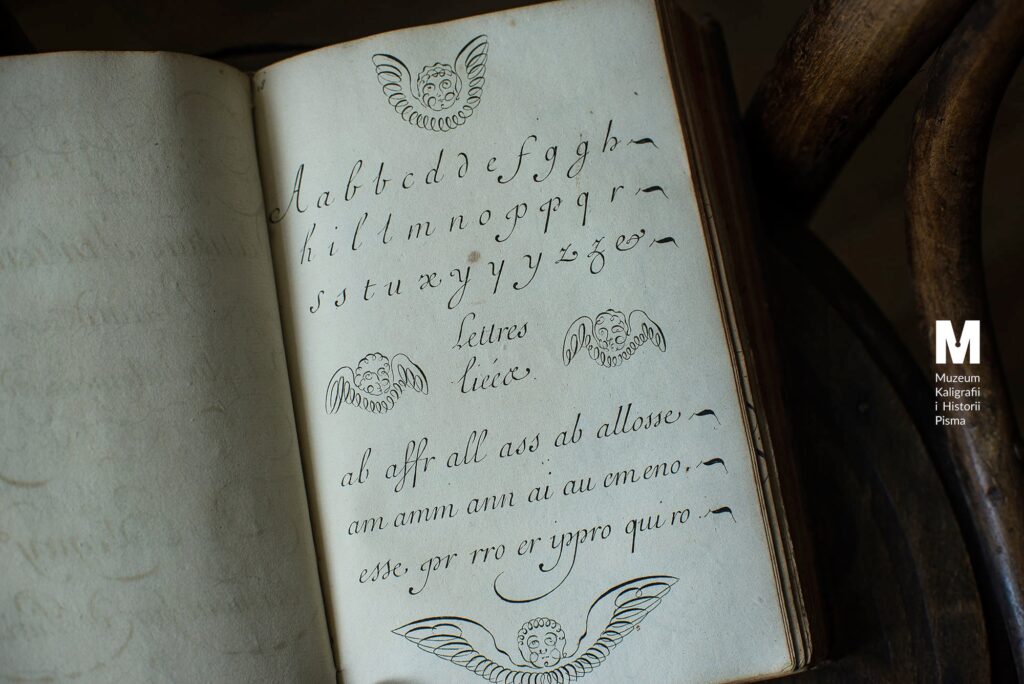 A a b b c d d e f g g h
h i l l m n o p p q r
s s t u x y y y z z &
Lettres
liééz
ab affr all ass ab allosse
am amm ann ai au em eno.
esse pr rro er yppro qui ro
M
Muzeum
Kaligrafii
i Historii
Pisma